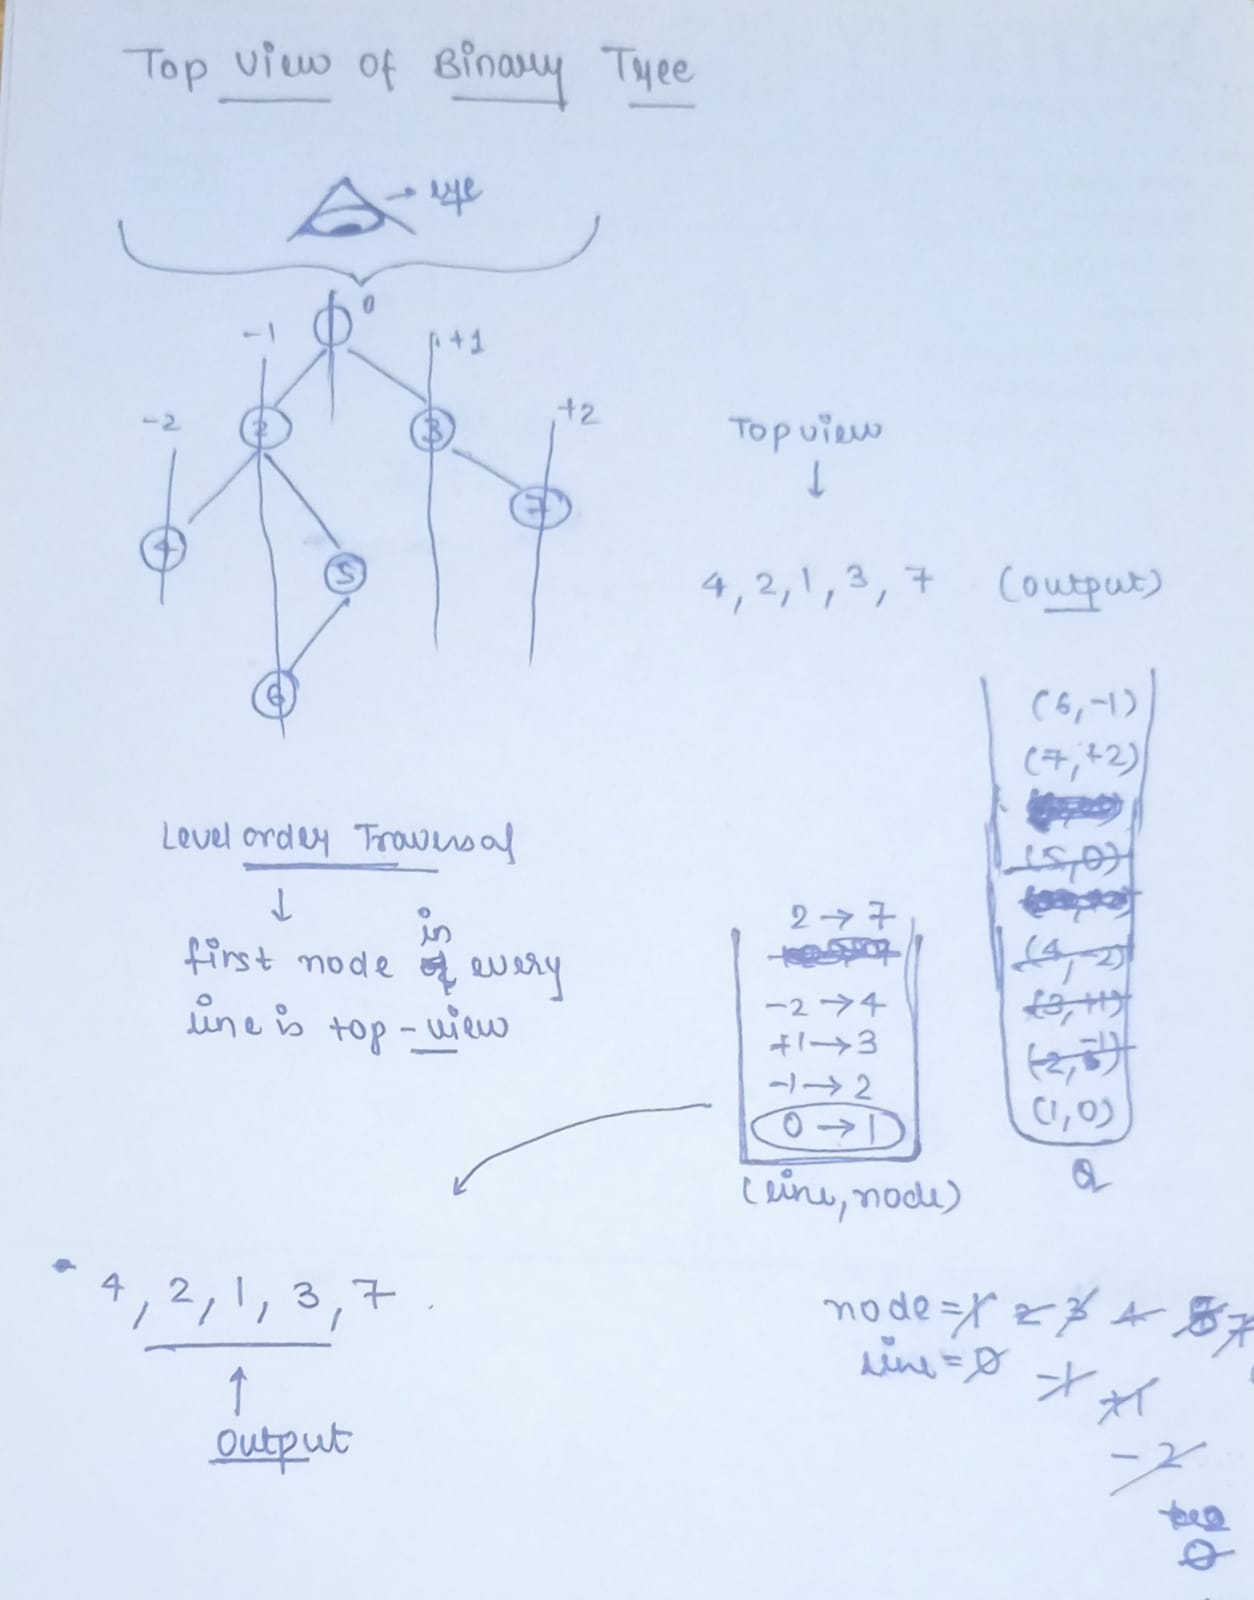 Top view of Binary Tree
→ eye
0
-1
+1
-2
+2
1
2
3
4
7
5
6
Top view
↓
4, 2, 1, 3, 7 (output)
Level order Traversal
↓
first node in every
line is top-view
2 → 7
-2 → 4
+1 → 3
-1 → 2
0 → 1
(line, node)
(6, -1)
(7, +2)
(5, 0)
(4, -2)
(3, +1)
(2, -1)
(1, 0)
Q
4, 2, 1, 3, 7.
↑
output
node = 1 2 3 4 5 7
line = 0 -1 +1
-2
0